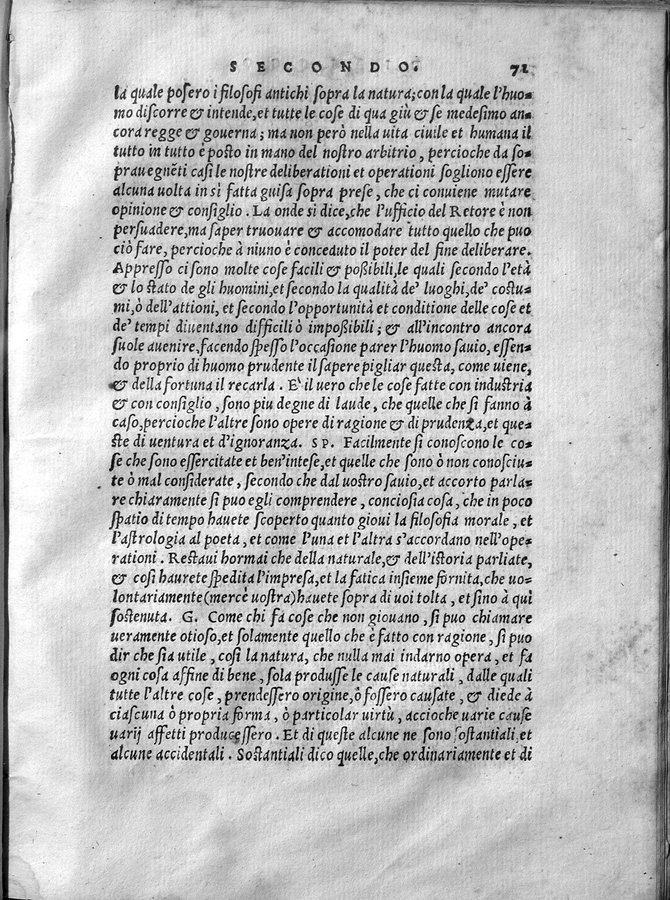 SECONDO. 71
la quale posero i filosofi antichi sopra la natura; con la quale l'huo=
mo discorre & intende, et tutte le cose di qua giù & se medesimo an=
cora regge & gouerna; ma non però nella uita ciuile et humana il
tutto in tutto è posto in mano del nostro arbitrio, percioche da so=
prauegnēti casi le nostre deliberationi et operationi sogliono essere
alcuna uolta in sì fatta guisa sopra prese, che ci conuiene mutare
opinione & consiglio. La onde si dice, che l'ufficio del Retore è non
persuadere, ma saper truouare & accomodare tutto quello che puo
ciò fare, percioche à niuno è conceduto il poter del fine deliberare.
Appresso ci sono molte cose facili & poßibili, le quali secondo l'età
& lo stato de gli huomini, et secondo la qualità de' luoghi, de' costu=
mi, ò dell'attioni, et secondo l'opportunità et conditione delle cose et
de' tempi diuentano difficili ò impoßibili; & all'incontro ancora
suole auenire, facendo spesso l'occasione parer l'huomo sauio, essen=
do proprio di huomo prudente il sapere pigliar questa, come uiene,
& della fortuna il recarla. E' il uero che le cose fatte con industria
& con consiglio, sono piu degne di laude, che quelle che si fanno à
caso, percioche l'altre sono opere di ragione & di prudenza, et que=
ste di uentura et d'ignoranza. SP. Facilmente si conoscono le co=
se che sono essercitate et ben'intese, et quelle che sono ò non conosciu=
te ò mal considerate, secondo che dal uostro sauio, et accorto parla=
re chiaramente si puo egli comprendere, conciosia cosa, che in poco
spatio di tempo hauete scoperto quanto gioui la filosofia morale, et
l'astrologia al poeta, et come l'una et l'altra s'accordano nell'ope=
rationi. Restaui hormai che della naturale, & dell'istoria parliate,
& così haurete spedita l'impresa, et la fatica insieme fornita, che uo=
lontariamente (mercè uostra) hauete sopra di uoi tolta, et sino à qui
sostenuta. G. Come chi fa cose che non giouano, si puo chiamare
ueramente otioso, et solamente quello che è fatto con ragione, si può
dir che sia utile, così la natura, che nulla mai indarno opera, et fa
ogni cosa affine di bene, sola produsse le cause naturali, dalle quali
tutte l'altre cose, prendessero origine, ò fossero causate, & diede à
ciascuna ò propria forma, ò particolar uirtù, accioche uarie cause
uarij affetti producessero. Et di queste alcune ne sono sostantiali, et
alcune accidentali. Sostantiali dico quelle, che ordinariamente et di